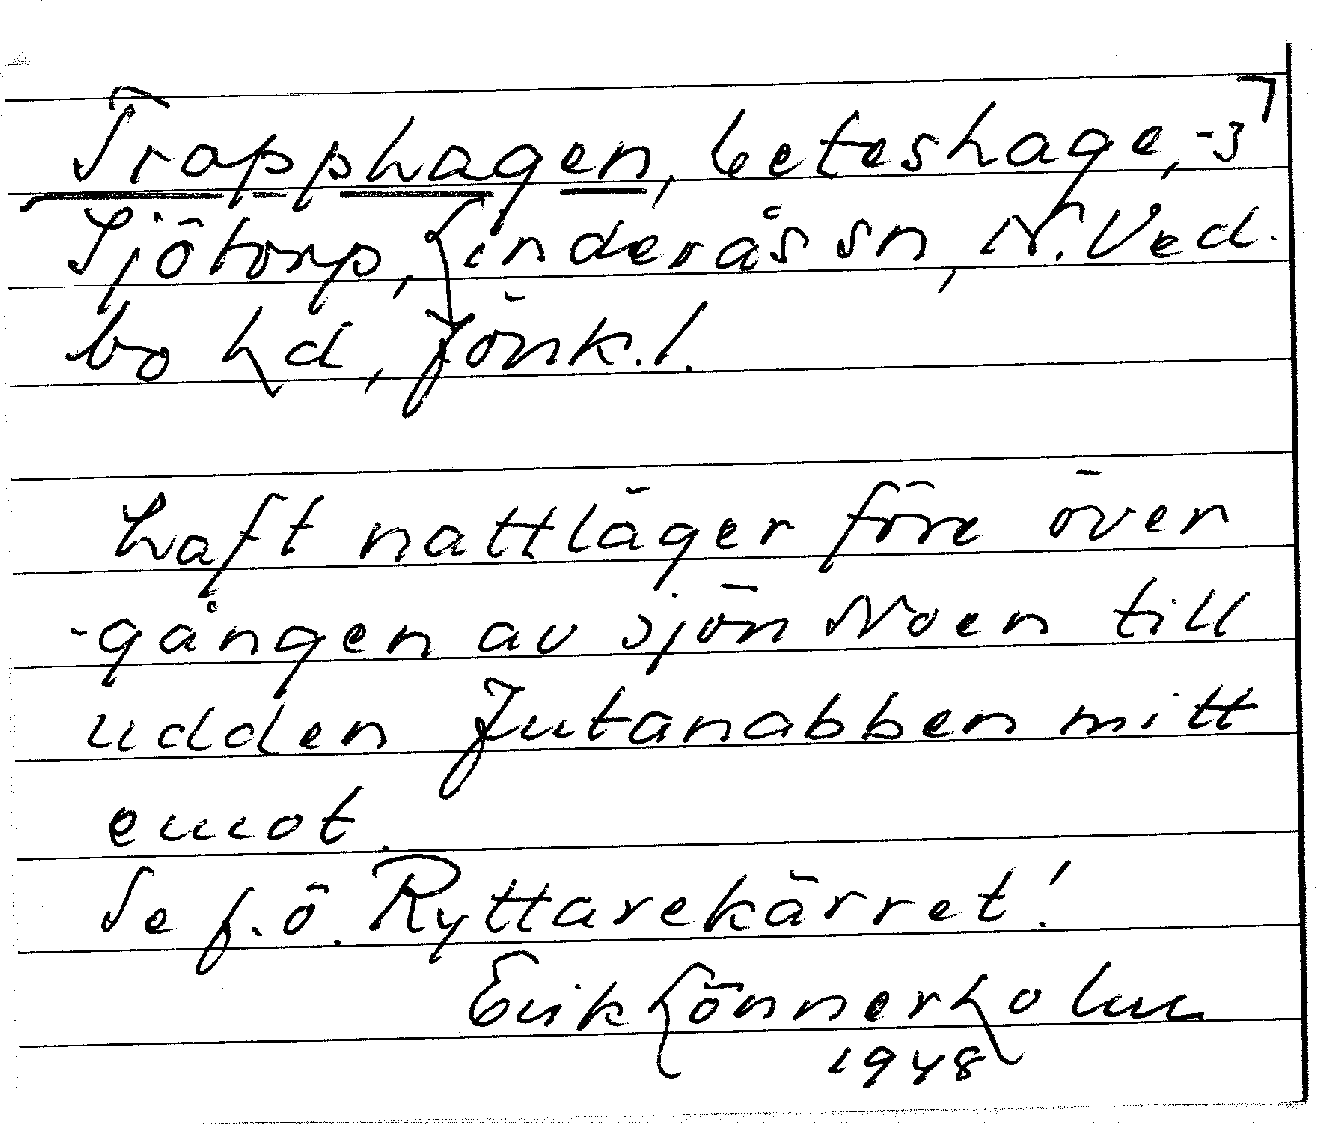 Trapphagen, beteshage, -3
Sjötorp, Linderås sn, N. Ved.
bo hd, Jönk.l.
haft nattläger före över
-gången av sjön Noen till
udden Jutanabben mitt
emot.
Se f.ö. Ryttarekärret!
Erik Lönnerholm
1948